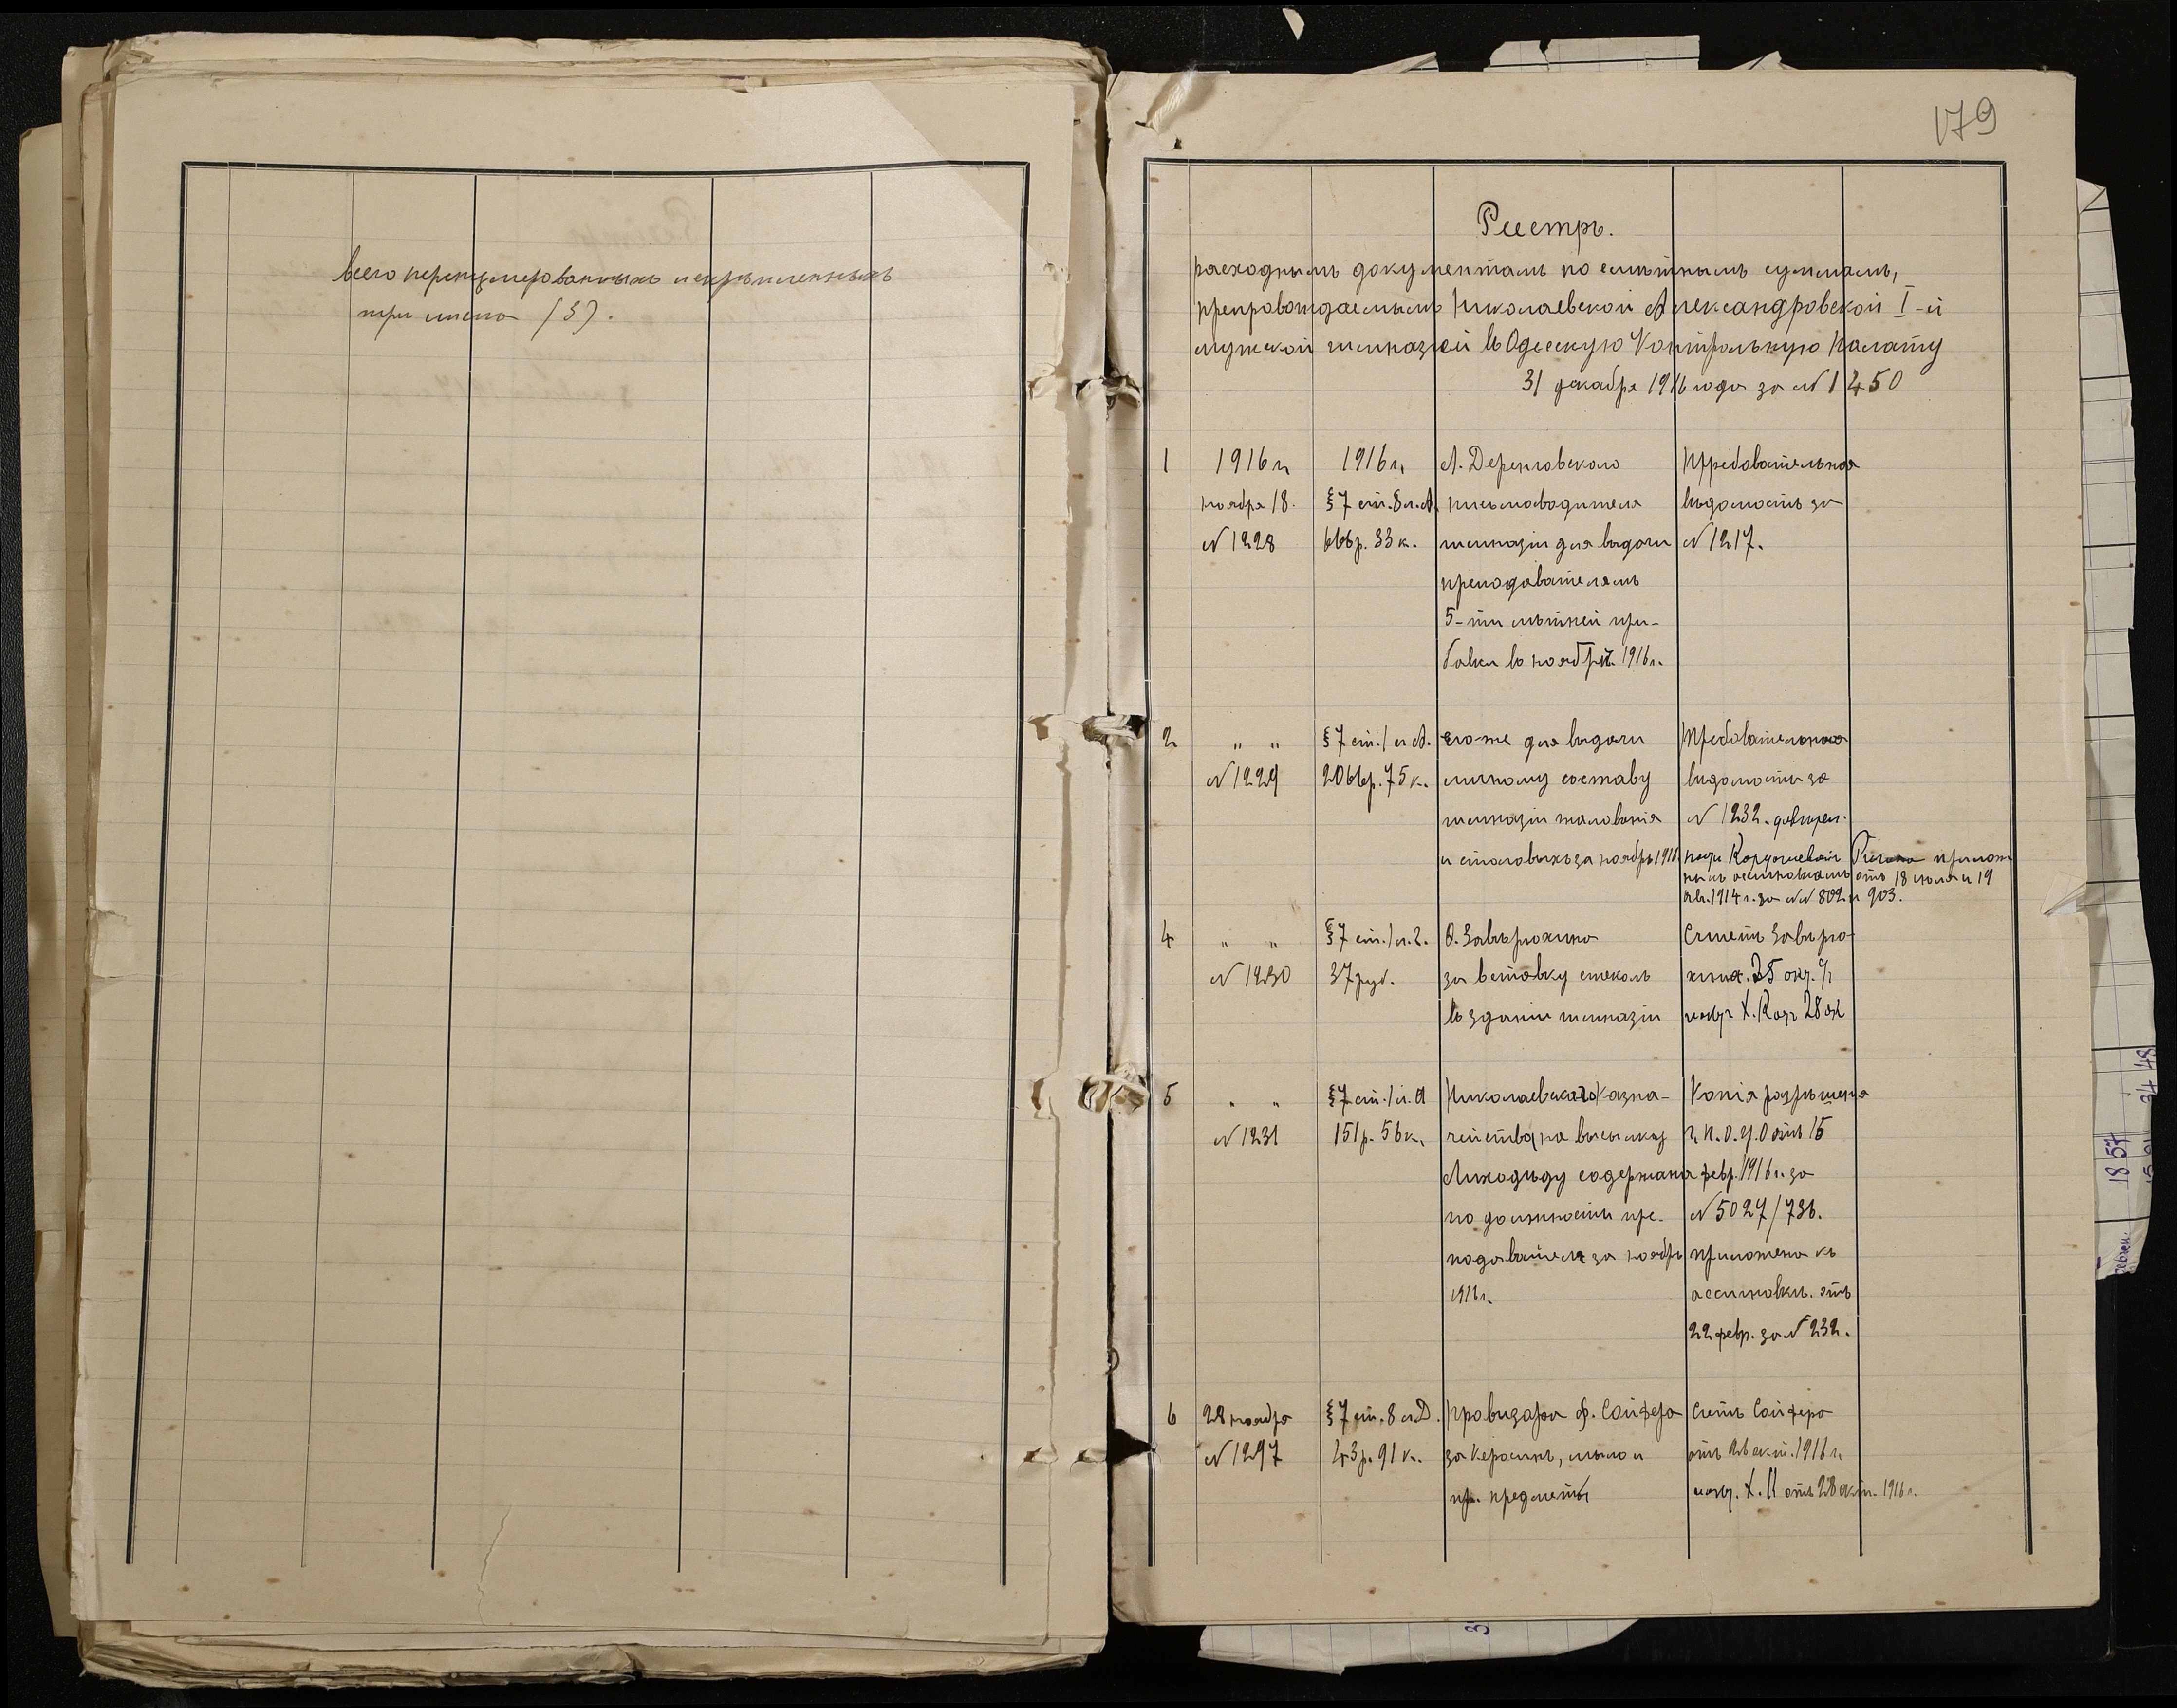 всего перенумерованныхъ и скрѣпленныхъ
три листа (3).
179
Реестръ.
расходнымъ документамъ по смѣтнымъ суммамъ,
препровождаемымъ Николаевской Александровской I-й
мужской гимназіей въ Одесскую Контрольную Палату
31 декабря 1916 года за № 1450
1 1916 г. 1916 г. Л. Деренговскаго Требовательная
ноября 18. § 7 ст. 8 л. А. письмоводителя вѣдомость за
№ 1228 666 р. 33 к. гимназіи для выдачи № 1217.
преподавателямъ
5-ти лѣтней при-
бавки въ ноябрѣ 1916 г.
2 " " § 7 ст. 1 л. А. его-же для выдачи Требовательная
№ 1229 2066 р. 75 к. личному составу вѣдомость за
гимназіи жалованія № 1232. довѣрен-
и столовыхъ за ноябрь 1916 прилож
ны къ ассигновкамъ отъ 18 іюля и 19
авг. 1914 г. за №№ 802 и 903.
4 " " § 7 ст. 1 л. 2. Ѳ. Завѣрюхина Счетъ Завѣрю-
№ 1230 37 руб. за вставку стеколъ хина. 25 окт. с/г
въ зданіи гимназіи Х. 28 ок
5 " " § 7 ст. 1 л. А Николаевскаго Казна- Копія разрѣшенія
№ 1231 151 р. 56 к. чейства, на высылку г. П. О. У. О отъ 15
Лиходѣду содержанія февр. 1916 г. за
по должности пре- № 5027/736.
подавателя за ноябрь приложена къ
1916 г. ассигновкѣ отъ
22 февр. за № 232.
6 22 ноября § 7 ст. 8 л. Д. Провизора Ф. Сойфера Счетъ Сойфера
№ 1297 43 р. 91 к. за керосинъ, мыло и отъ 26 окт. 1916 г.
пр. предметы Х. К отъ 28 окт. 1916 г.
18 57
34 48